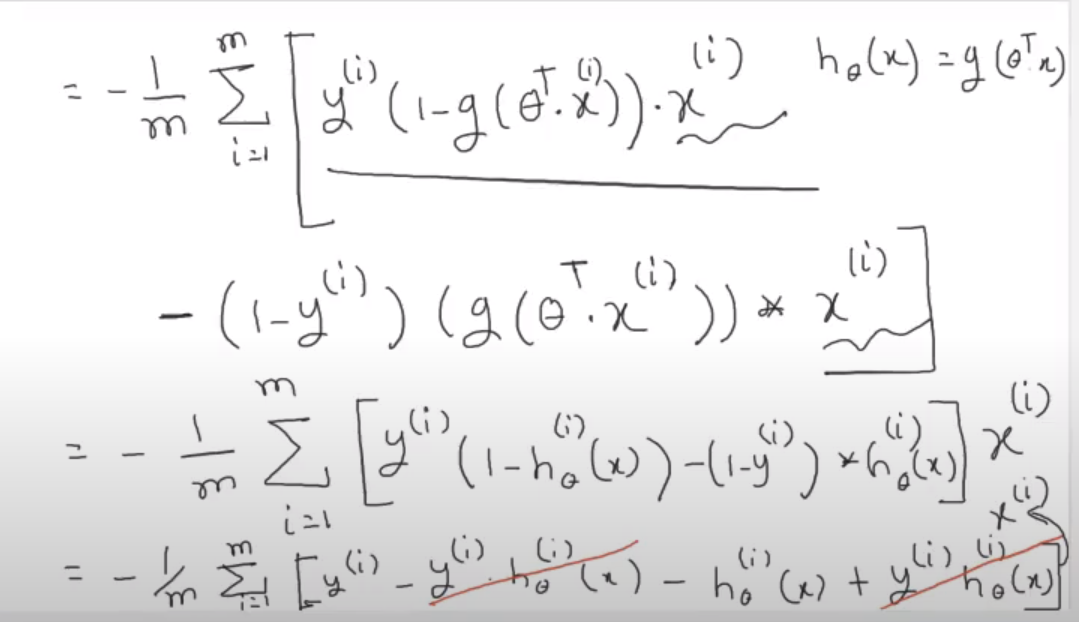 = - 1/m Σ_{i=1}^{m} [ y^{(i)} (1 - g(θ^T . x^{(i)})) . x^{(i)}    h_θ(x) = g(θ^T x)
- (1 - y^{(i)}) (g(θ^T . x^{(i)})) * x^{(i)} ]
= - 1/m Σ_{i=1}^{m} [ y^{(i)} (1 - h_θ^{(i)}(x)) - (1 - y^{(i)}) * h_θ^{(i)}(x) ] x^{(i)}
= - 1/m Σ_{i=1}^{m} [ y^{(i)} - y^{(i)} . h_θ^{(i)}(x) - h_θ^{(i)}(x) + y^{(i)} h_θ^{(i)}(x) ] x^{(i)}